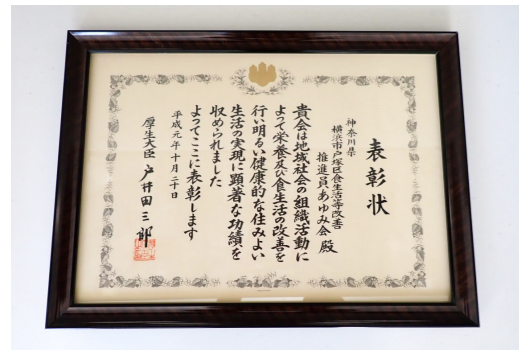 表彰状
神奈川県
横浜市戸塚区食生活等改善
推進員あゆみ会 殿
貴会は地域社会の組織活動に
よって栄養及び食生活の改善を
行い明るい健康的な住みよい
生活の実現に顕著な功績を
収められました
よってここに表彰します
平成元年十月二十日
厚生大臣 戸井田三郎